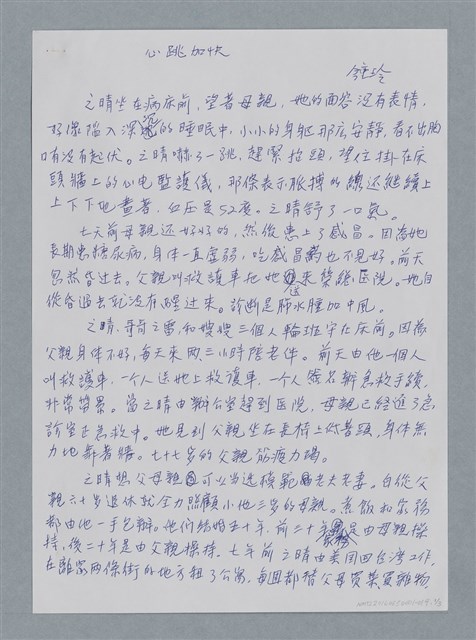 心跳加快
鍾玲
之晴坐在病床前,望著母親,她的面容沒有表情,
好像陷入深沉的睡眠中,小小的身軀那麼安靜,看不出胸
口有没有起伏。之晴嚇了一跳,趕緊抬頭,望住掛在床
頭牆上的心电監護儀,那條表示脈搏的線还繼續上
上下下地畫著,血压是52度。之晴舒了一口氣。
七天前母親还好好的,然後患上了感冒。因為她
長期患糖尿病,身体一直虛弱,吃感冒葯也不見好。前天
忽然昏过去。父親叫救護車把她送來榮總医院。她自
從昏過去就没有醒过来。診斷是肺水腫加中風。
之晴、哥哥之雷和嫂嫂三個人輪班守在床前。因為
父親身体不好,每天来兩三小時陪老伴。前天由他一個人
叫救護車,一個人送她上救護車,一個人簽名辦急救手續,
非常勞累。當之晴由辦公室趕到医院,母親已經進了急
診室正急救中。她見到父親坐在長椅上低著頭,身体無
力地靠著牆。七十七岁的父親筋疲力竭。
之晴想父母親可以当选模範老夫老妻。自從父
親六十岁退休就全力照顧小他三岁的母親。煮飯和家務
都由他一手包辦。他們結婚五十年,前二十年家務是由母親操
持,後二十年是由父親操持。七年前之晴由美国回台湾工作,
在離家两條街的地方租了公寓,每週都替父母買菜買雜物